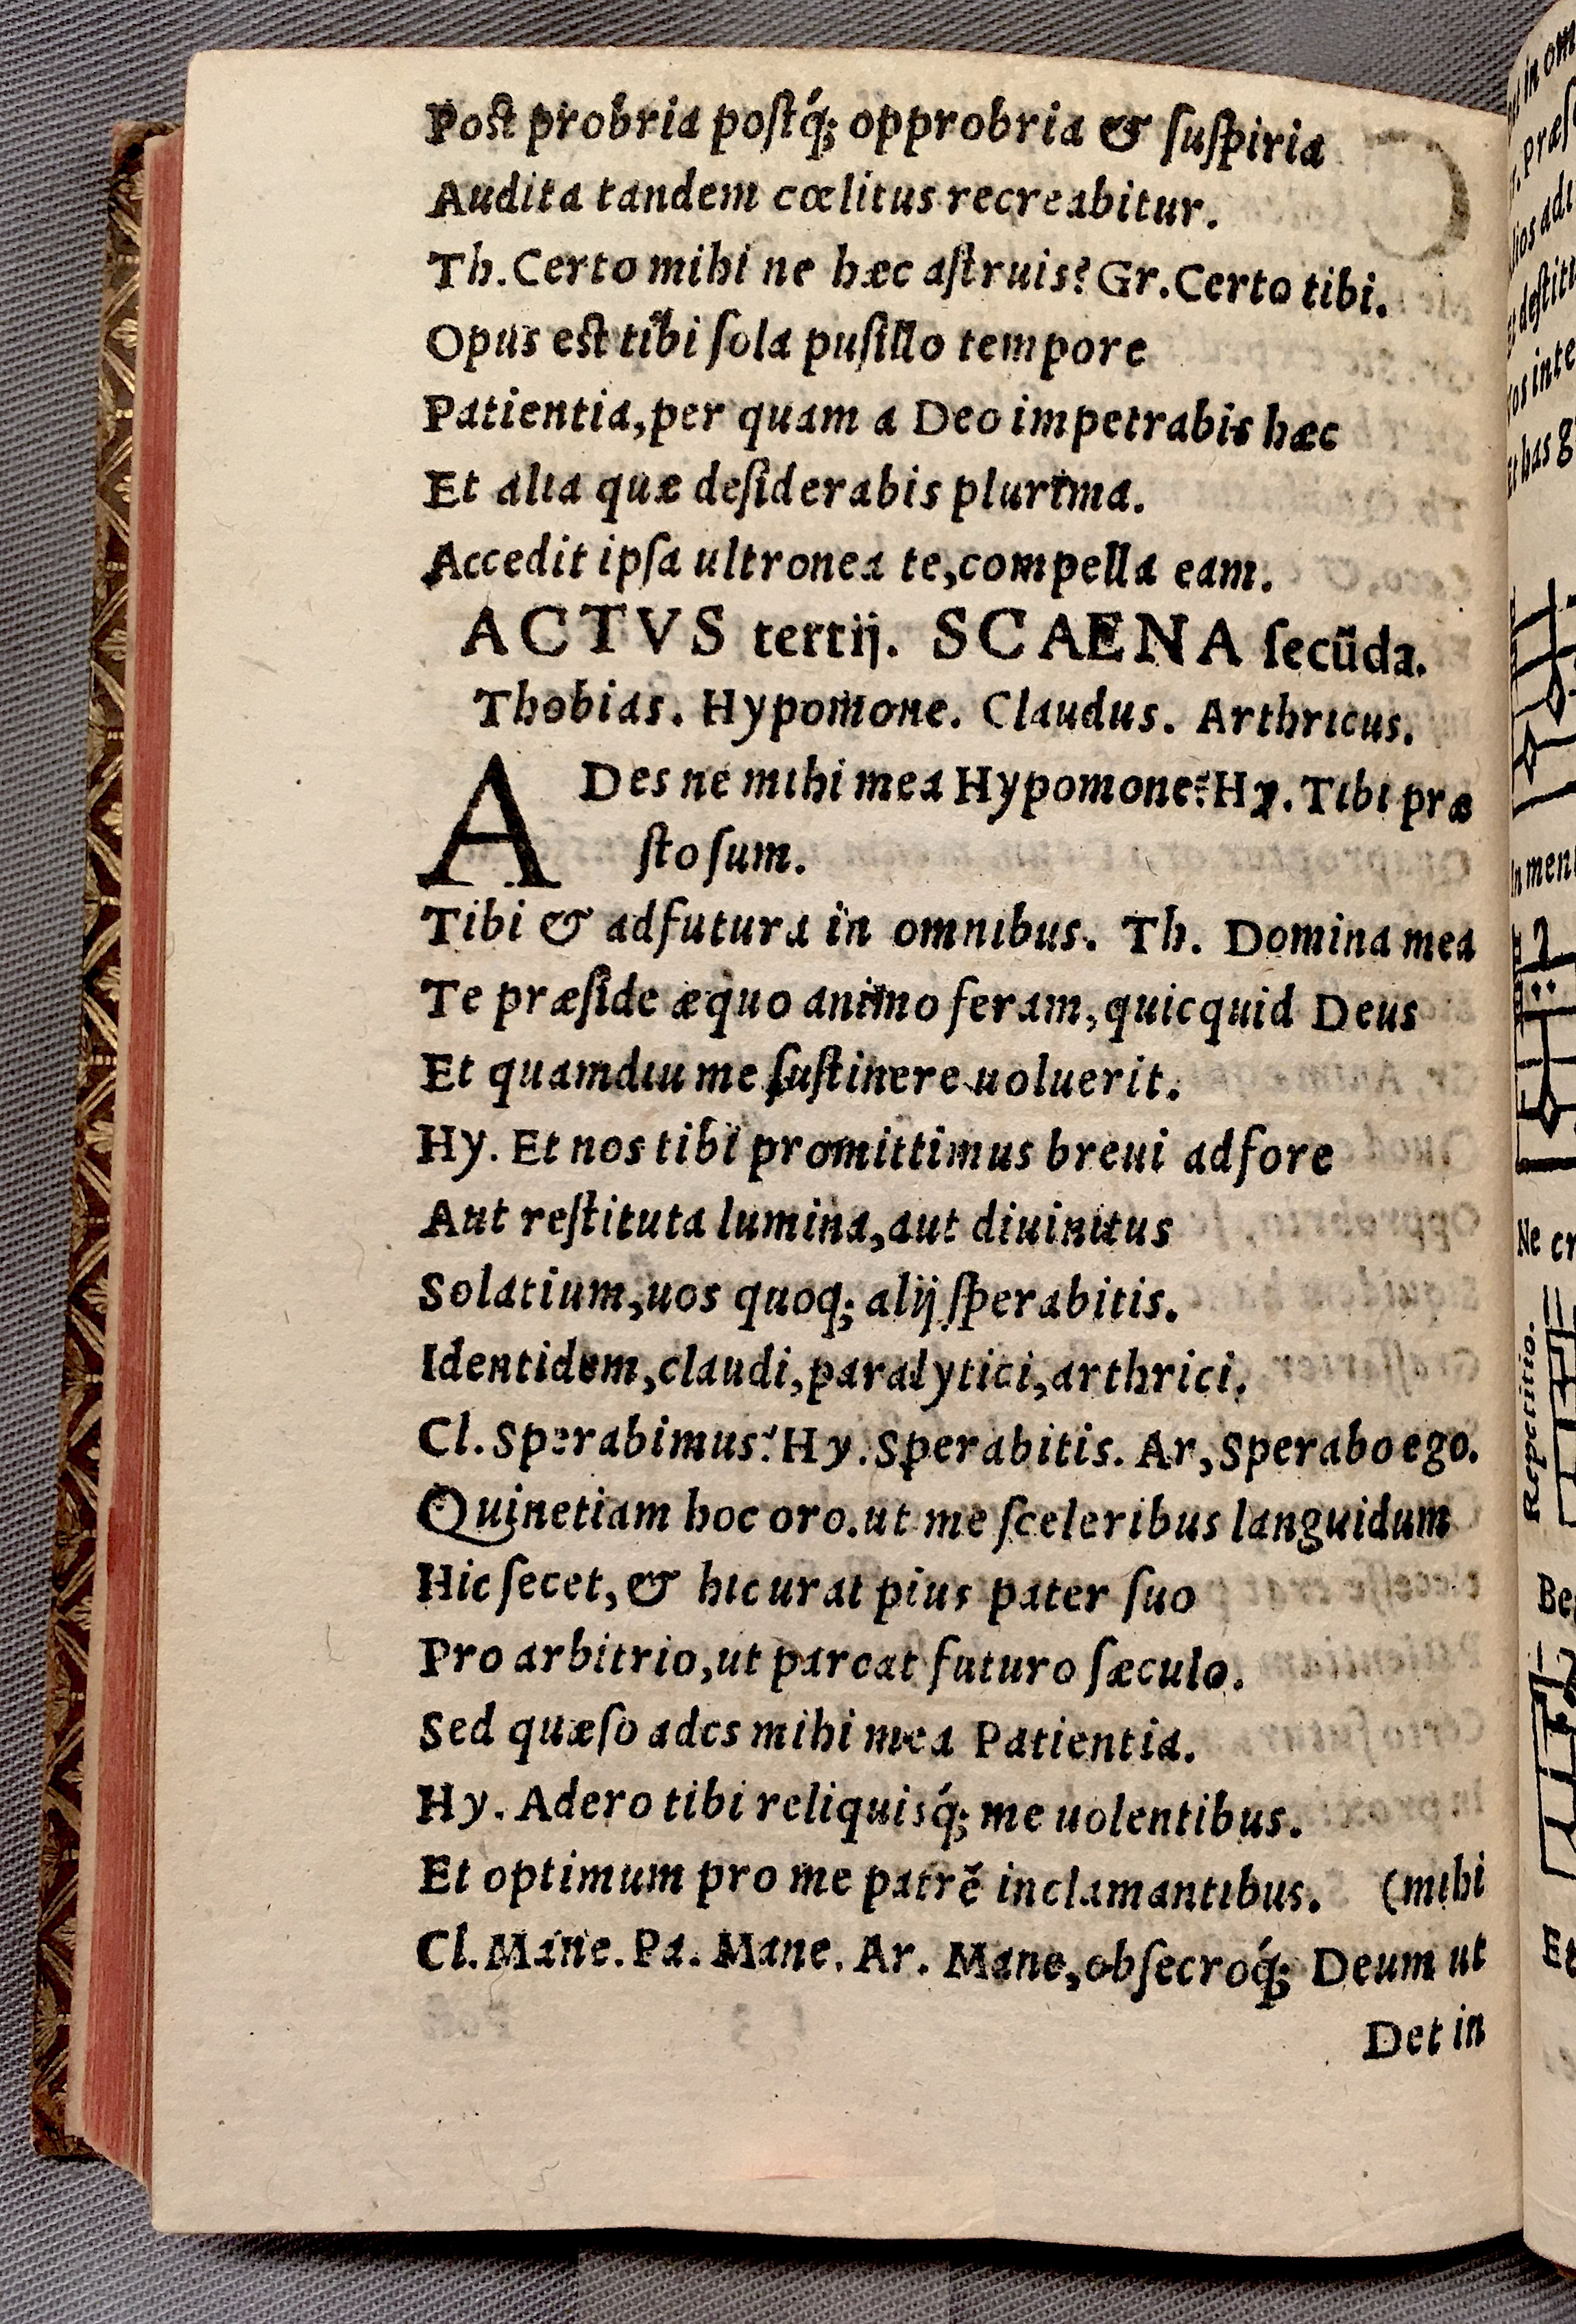 Post probria postq́; opprobria & ſuſpiria
Audita tandem cœlitus recreabitur.
Th. Certo mihi ne hæc aſtruis? Gr. Certo tibi.
Opus est tibi ſola puſillo tempore
Patientia, per quam a Deo impetrabis hæc
Et alia quæ deſiderabis plurima.
Accedit ipſa ultronea te, compella eam.
ACTVS tertij. SCAENA ſecūda.
Thobias. Hypomone. Claudus. Arthricus.
ADes ne mihi mea Hypomone? Hy. Tibi præ
ſto ſum.
Tibi & adfutura in omnibus. Th. Domina mea
Te præſide æquo animo feram, quicquid Deus
Et quamdiu me ſuſtinere uoluerit.
Hy. Et nos tibi promittimus breui adfore
Aut reſtituta lumina, aut diuinitus
Solatium, uos quoq; alij ſperabitis.
Identidem, claudi, paralytici, arthrici.
Cl. Sperabimus? Hy. Sperabitis. Ar, Sperabo ego.
Quinetiam hoc oro. ut me ſceleribus languidum
Hic ſecet, & hic urat pius pater ſuo
Pro arbitrio, ut parcat futuro ſæculo.
Sed quæſo ades mihi mea Patientia.
Hy. Adero tibi reliquisq́; me uolentibus.
Et optimum pro me patrē inclamantibus. (mihi
Cl. Mane. Pa. Mane. Ar. Mane, obſecroq́; Deum ut
Det in
Ne
Repetitio.